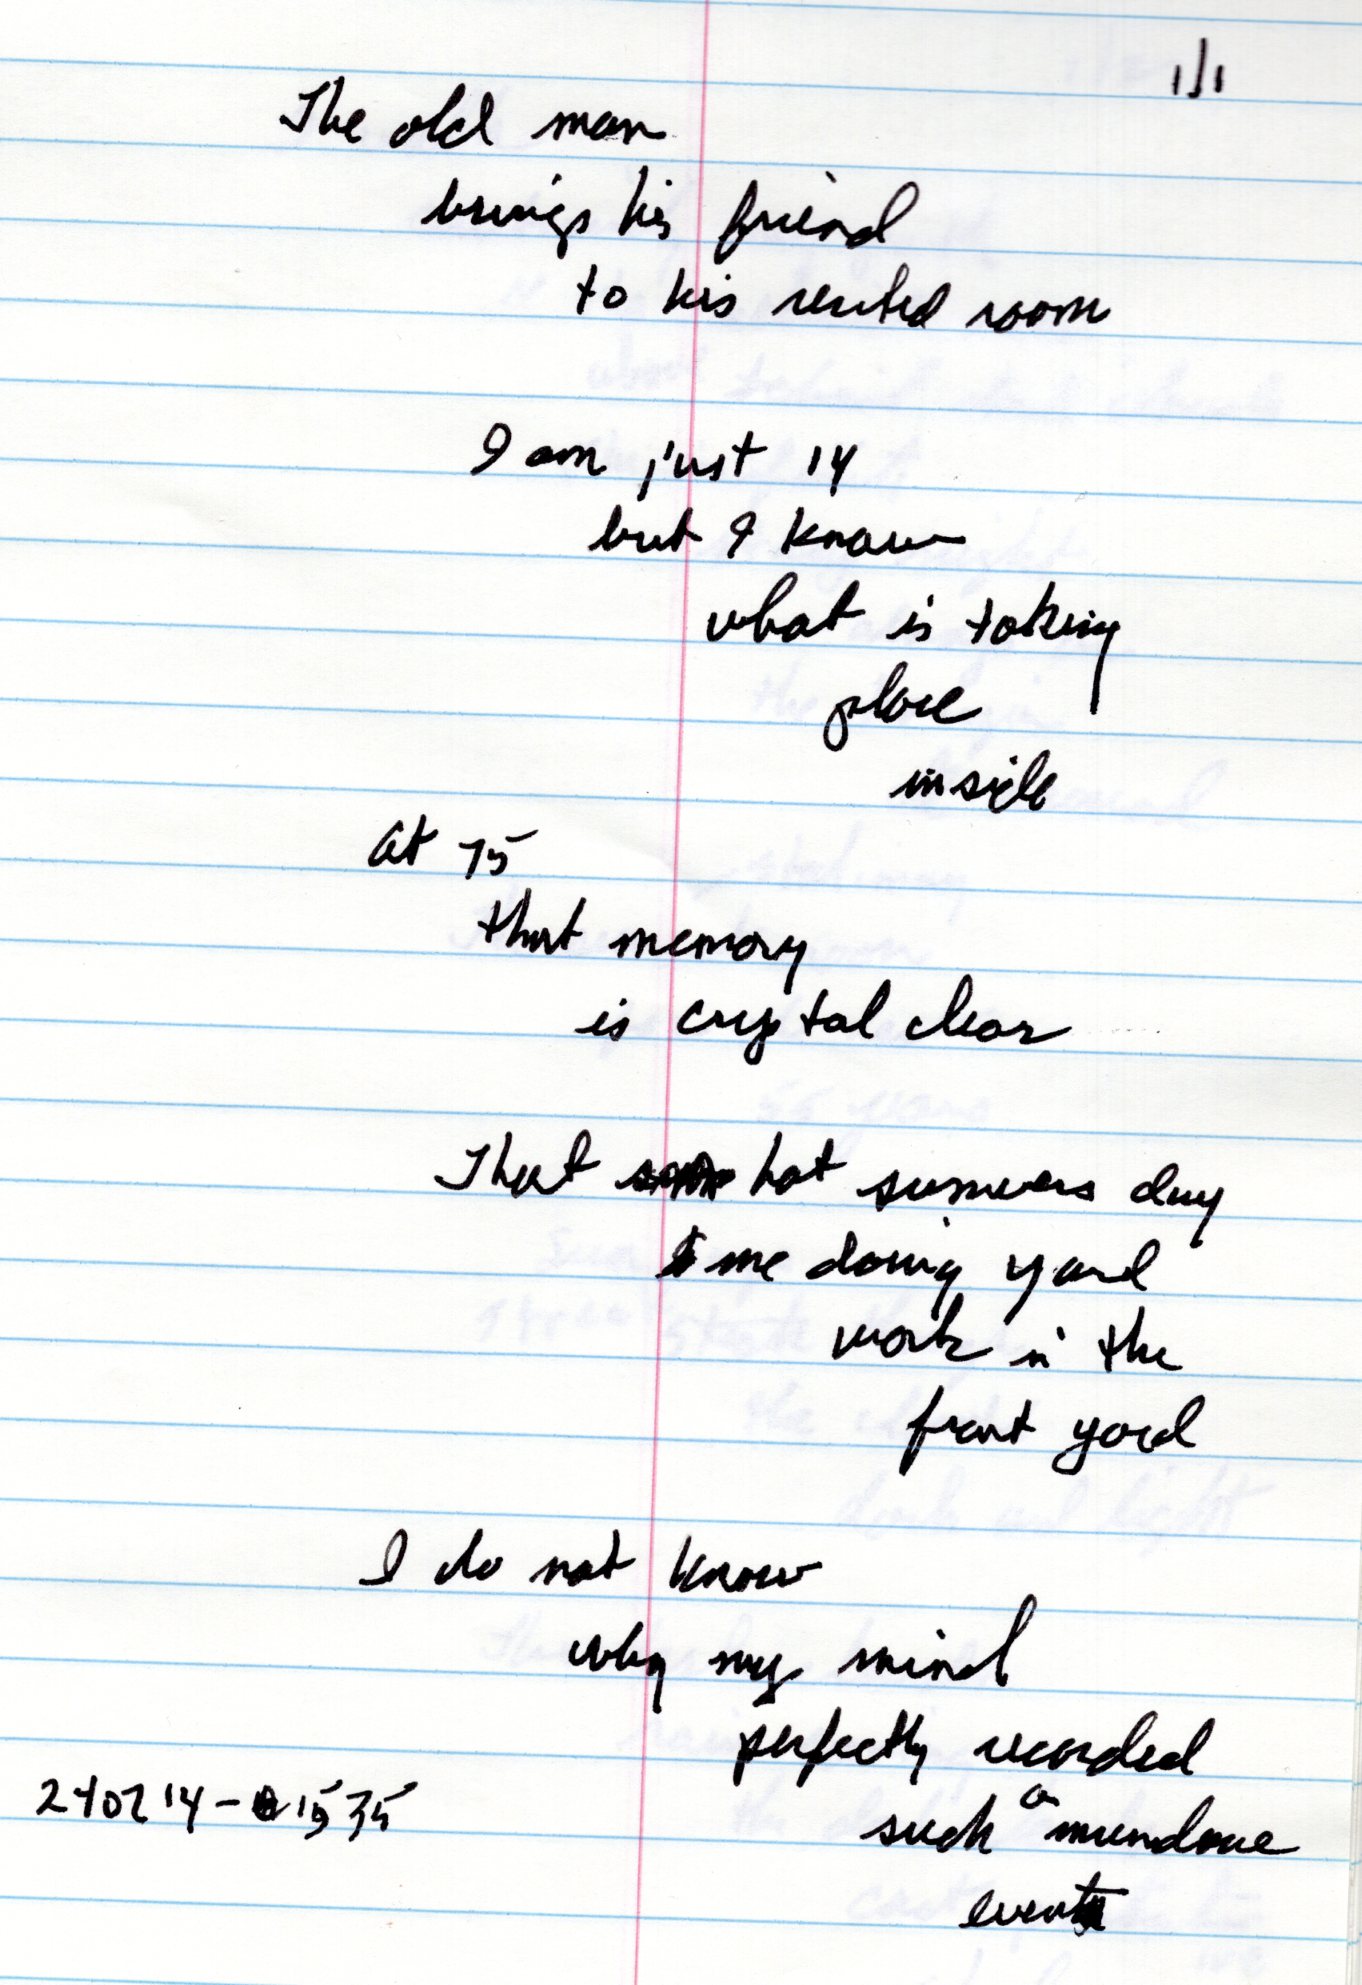 1/1
The old man
brings his friend
to his rented room
I am just 14
but I know
what is taking
place
inside
at 75
that memory
is crystal clear
That hot summers day
me doing yard
work in the
front yard
I do not know
why my mind
perfectly recorded
such a mundane
event
240214-1535